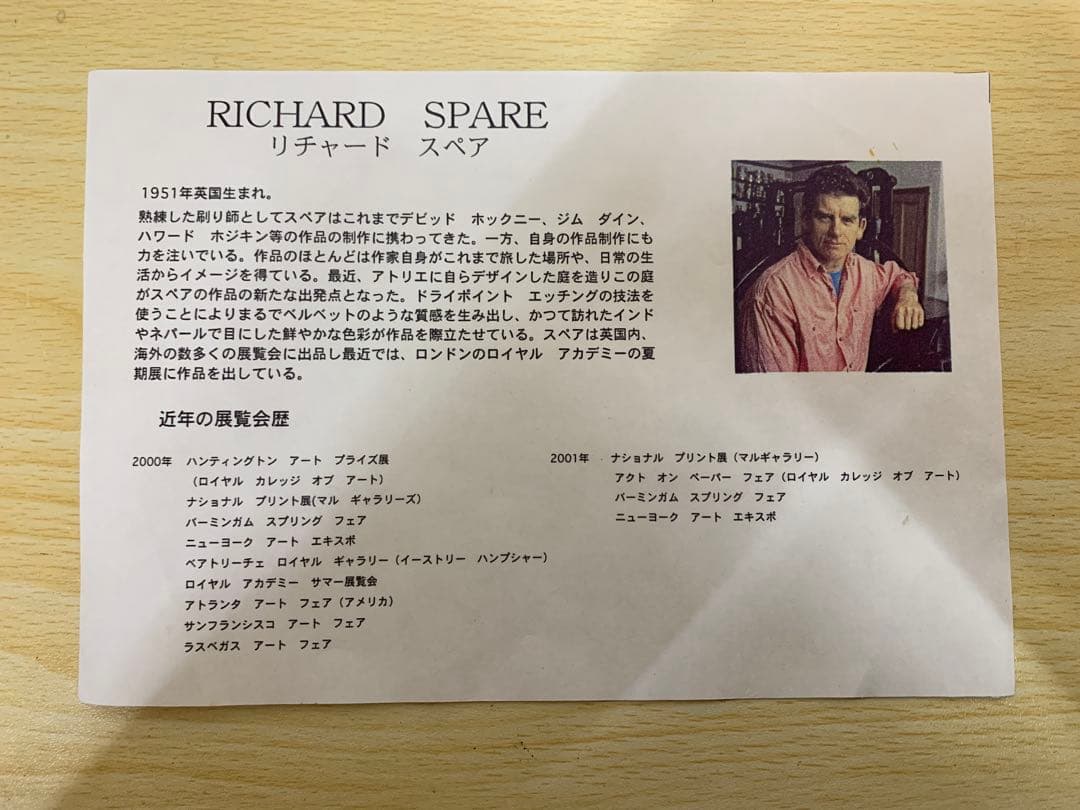 RICHARD SPARE
リチャード スペア
1951年英国生まれ。
熟練した刷り師としてスペアはこれまでデビッド ホックニー、ジム ダイン、
ハワード ホジキン等の作品の制作に携わってきた。一方、自身の作品制作にも
力を注いでいる。作品のほとんどは作家自身がこれまで旅した場所や、日常の生
活からイメージを得ている。最近、アトリエに自らデザインした庭を造りこの庭
がスペアの作品の新たな出発点となった。ドライポイント エッチングの技法を
使うことによりまるでベルベットのような質感を生み出し、かつて訪れたインド
やネパールで目にした鮮やかな色彩が作品を際立たせている。スペアは英国内、
海外の数多くの展覧会に出品し最近では、ロンドンのロイヤル アカデミーの夏
期展に作品を出している。
近年の展覧会歴
2000年 ハンティングトン アート プライズ展
（ロイヤル カレッジ オブ アート）
ナショナル プリント展(マル ギャラリーズ）
バーミンガム スプリング フェア
ニューヨーク アート エキスポ
ベアトリーチェ ロイヤル ギャラリー（イーストリー ハンプシャー）
ロイヤル アカデミー サマー展覧会
アトランタ アート フェア（アメリカ）
サンフランシスコ アート フェア
ラスベガス アート フェア
2001年 ナショナル プリント展（マルギャラリー）
アクト オン ペーパー フェア（ロイヤル カレッジ オブ アート）
バーミンガム スプリング フェア
ニューヨーク アート エキスポ